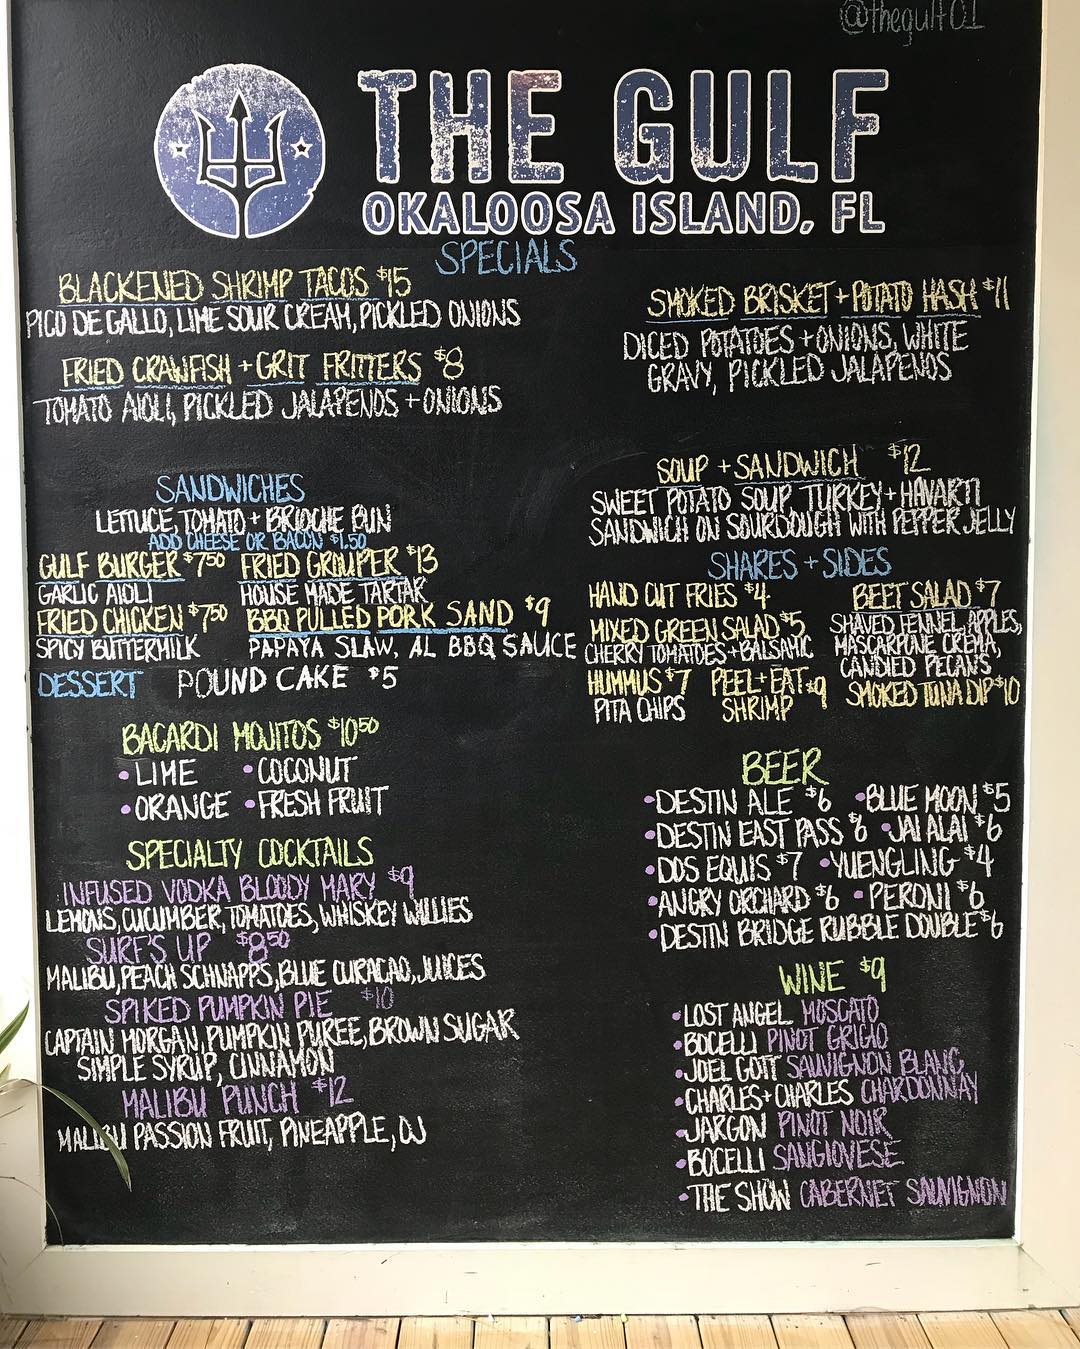 @thegulf01
THE GULF
OKALOOSA ISLAND, FL
SPECIALS
BLACKENED SHRIMP TACOS $15
PICO DE GALLO, LIME SOUR CREAM, PICKLED ONIONS
FRIED CRAWFISH + GRIT FRITTERS $8
TOMATO AIOLI, PICKLED JALAPENOS + ONIONS
SMOKED BRISKET + POTATO HASH $11
DICED POTATOES + ONIONS, WHITE
GRAVY, PICKLED JALAPENOS
SOUP + SANDWICH $12
SWEET POTATO SOUP, TURKEY + HAVARTI
SANDWICH ON SOURDOUGH WITH PEPPER JELLY
SANDWICHES
LETTUCE, TOMATO + BRIOCHE BUN
ADD CHEESE OR BACON $1.50
GULF BURGER $7.50 FRIED GROUPER $13
GARLIC AIOLI HOUSE MADE TARTAR
FRIED CHICKEN $7.50 BBQ PULLED PORK SAND $9
SPICY BUTTERMILK PAPAYA SLAW, AL BBQ SAUCE
DESSERT POUND CAKE $5
SHARES + SIDES
HAND CUT FRIES $4
MIXED GREEN SALAD $5
CHERRY TOMATOES + BALSAMIC
HUMMUS $7
PITA CHIPS
PEEL + EAT $9
SHRIMP
BEET SALAD $7
SHAVED FENNEL, APPLES,
MASCARPONE CREMA,
CANDIED PECANS
SMOKED TUNA DIP $10
BACARDI MOJITOS $10.50
• LIME • COCONUT
• ORANGE • FRESH FRUIT
SPECIALTY COCKTAILS
INFUSED VODKA BLOODY MARY $9
LEMONS, CUCUMBER, TOMATOES, WHISKEY WILLIES
SURF'S UP $8.50
MALIBU, PEACH SCHNAPPS, BLUE CURACAO, JUICES
SPIKED PUMPKIN PIE $10
CAPTAIN MORGAN, PUMPKIN PUREE, BROWN SUGAR
SIMPLE SYRUP, CINNAMON
MALIBU PUNCH $12
MALIBU PASSION FRUIT, PINEAPPLE, OJ
BEER
• DESTIN ALE $6 • BLUE MOON $5
• DESTIN EAST PASS $6 • JAI ALAI $6
• DOS EQUIS $7 • YUENGLING $4
• ANGRY ORCHARD $6 • PERONI $6
• DESTIN BRIDGE RUBBLE DOUBLE $6
WINE $9
• LOST ANGEL MOSCATO
• BOCELLI PINOT GRIGIO
• JOEL GOTT SAUVIGNON BLANC
• CHARLES + CHARLES CHARDONNAY
• JARGON PINOT NOIR
• BOCELLI SANGIOVESE
• THE SHOW CABERNET SAUVIGNON